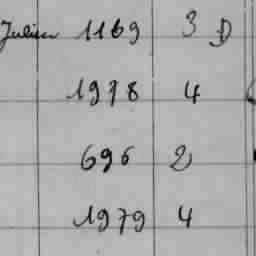 Julien 1169 3 D
1978 4
696 2
1979 4